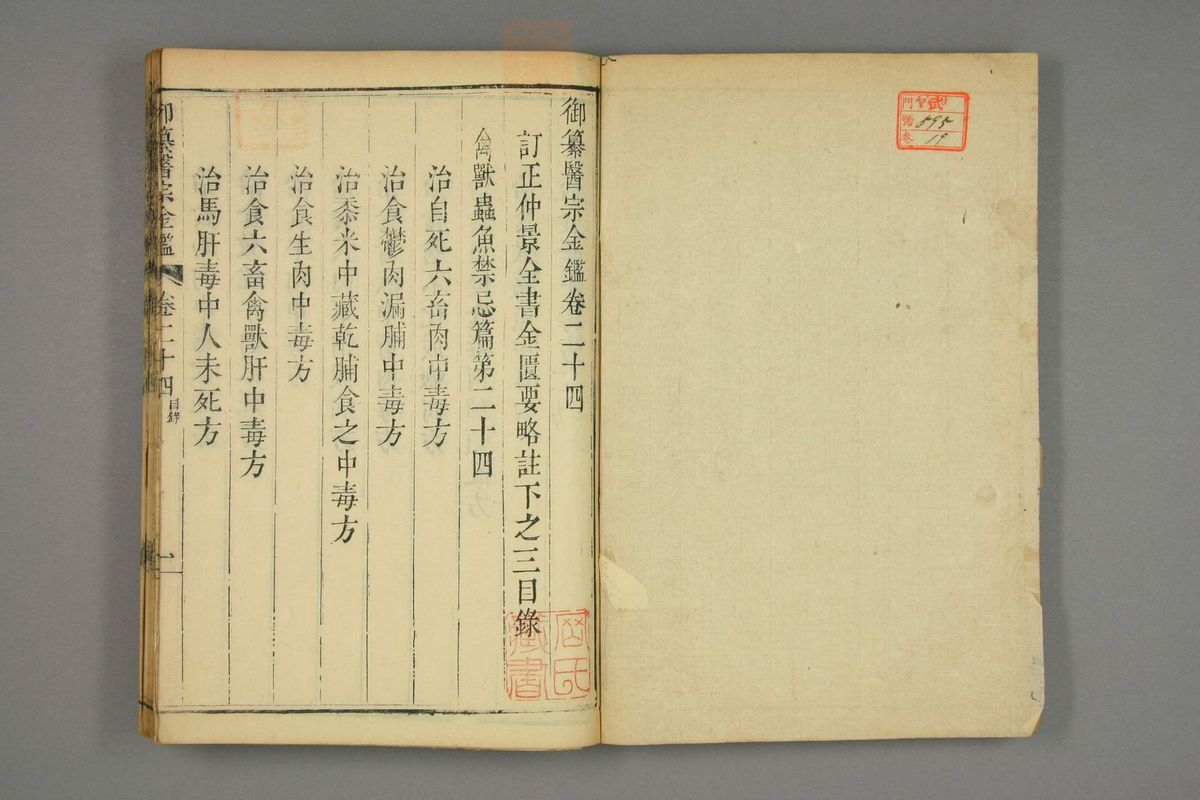 御纂醫宗金鑑卷二十四
訂正仲景全書金匱要略註下之三目錄
禽獸蟲魚禁忌篇第二十四
治自死六畜肉中毒方
治食鬱肉漏脯中毒方
治黍米中藏乾脯食之中毒方
治食生肉中毒方
治食六畜禽獸肝中毒方
治馬肝毒中人未死方
御纂醫宗金鑑 卷二十四 目錄 一
門 ヤ
號 895
卷 19
藏書